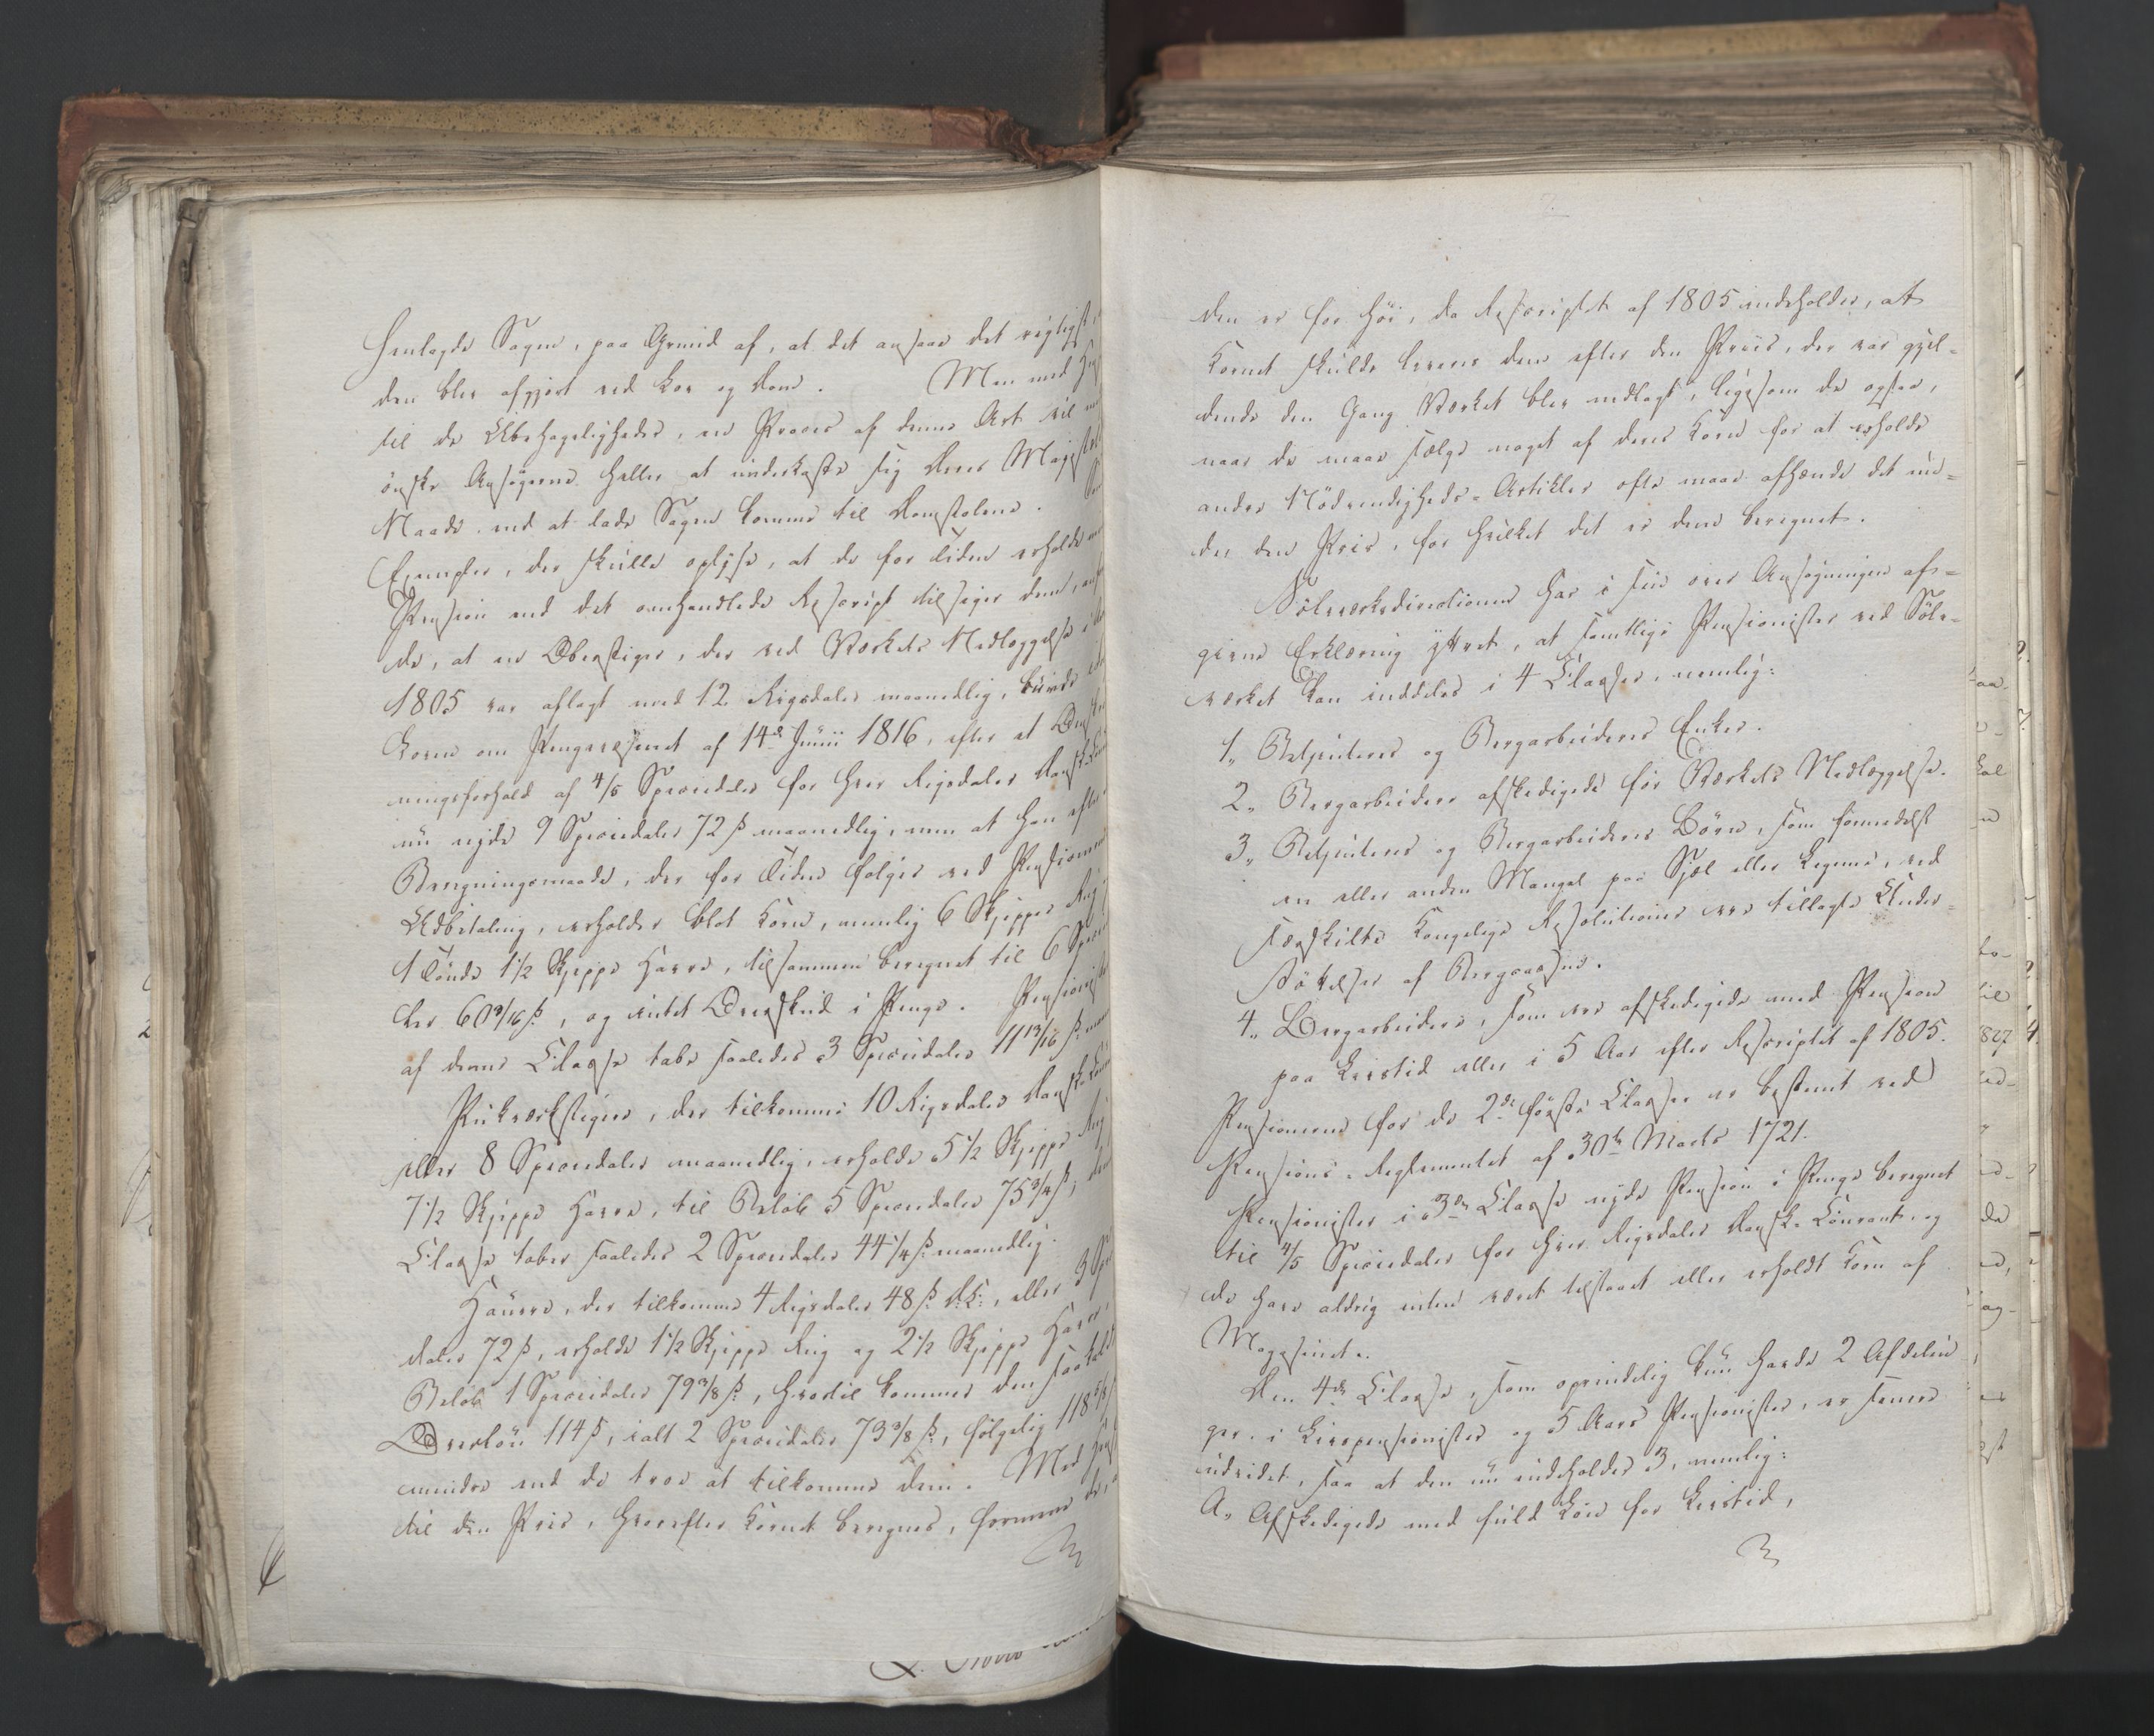 henlagde Sagen, paa Grund af, at det ansaae det rigtigst,
den blev afgjort ved Lov og Dom. Men med
til de Ubehageligheder, en Proces af denne Art vil
ønske Ansøgerne heller at underkaste sig Deres Majestæts
Naade end at lade Sagen komme til Domstolene.
Exempler, der skulle oplyse, at de for Tiden erholde
Pension end det omhandlede Rescript tilsiger dem,
de, at en Oberstiger, der ved Værkets Nedlæggelse i
1805 var aflagt med 12 Rigsdaler maanedlig, burde
Loven om Pengevæsenet af 14de Junii 1816, efter et
ningsforhold af 4/5 Speciedaler for hver Rigsdaler Dansk
nu nyde 9 Speciedaler 72 ß maanedlig, men at han efter
Beregningsmaade, der for Tiden følges ved Pensionernes
Udbetaling, erholder blot Korn, nemlig 6 Skjepper Rug
1 Tønde 1 1/2 Skjeppe Havre, tilsammen beregnet til 6
ler 60 3/16 ß, og intet Overskud i Penge. Pensionister
af denne Classe tabe saaledes 3 Speciedaler 11 13/16 ß
Pukværkstigere, der tilkomme 10 Rigsdaler Dansk
eller 8 Speciedaler maanedlig, erholde 5 1/2 Skjeppe Rug
7 1/2 Skjeppe Havre, til Beløb 5 Speciedaler 75 3/4 ß;
Classe taber saaledes 2 Speciedaler 44 1/4 ß maanedlig.
Hauere, der tilkomme 4 Rigsdaler 48 ß D: C:, eller 3
daler 72 ß, erholde 1 1/2 Skjeppe Rug og 2 1/2 Skjeppe Havre,
Beløb 1 Speciedaler 79 3/8 ß, hvortil kommer den saakaldte
Overløn 114 ß, ialt 2 Speciedaler 73 3/8 ß, følgelig 118 5/8 ß
mindre end de troe at tilkomme dem. Med
til den Priis, hvorefter Kornet beregnes, formene de,
den er for høi, da Rescriptet af 1805 indeholder, at
Kornet skulde leveres dem efter den Priis, der var gjel-
dende den Gang Værket blev nedlagt, ligesom de ogsaa,
naar de maae sælge noget af deres Korn for at erholde
andre Nødvendigheds-Artikler ofte maae afhænde det un-
der den Priis, for hvilket det er dem beregnet.
Sølvværksdirectionen har i sin over Ansøgningen af-
givne Erklæring yttret, at samtlige Pensionister ved Sølv-
værket kan inddeles i 4 Classer, nemlig:
1,, Betjenteres og Bergarbeideres Enker.
2,, Bergarbeidere afskedigede før Værkets Nedlæggelse.
3,, Betjenteres og Bergarbeideres Børn, som formedelst
en eller anden Mangel paa Sjel eller Legeme, ved
særskilte Kongelige Resolutioner ere tillagte Under-
støttelser af Bergcassen.
4,, Bergarbeidere, som ere afskedigede med Pension
paa Livstid eller i 5 Aar efter Rescriptet af 1805.
Pensionerne for de 2de første Classer er bestemt ved
Pensions-Reglementet af 30te Marts 1721.
Pensionister i 3die Classe nyde Pension i Penge beregnet
til 4/5 Speciedaler for hver Rigsdaler Dansk Courant, og
de have aldrig enten været tilstaaet eller erholdt Korn af
Magasinet.
Den 4de Classe, som oprindelig kun havde 2 Afdelin
ger i Livspensionister og 5 Aars Pensionister, er senere
udvidet, saa at den nu indeholder 3, nemlig:
A,, Afskedigede med fuld Løn for Livstid,